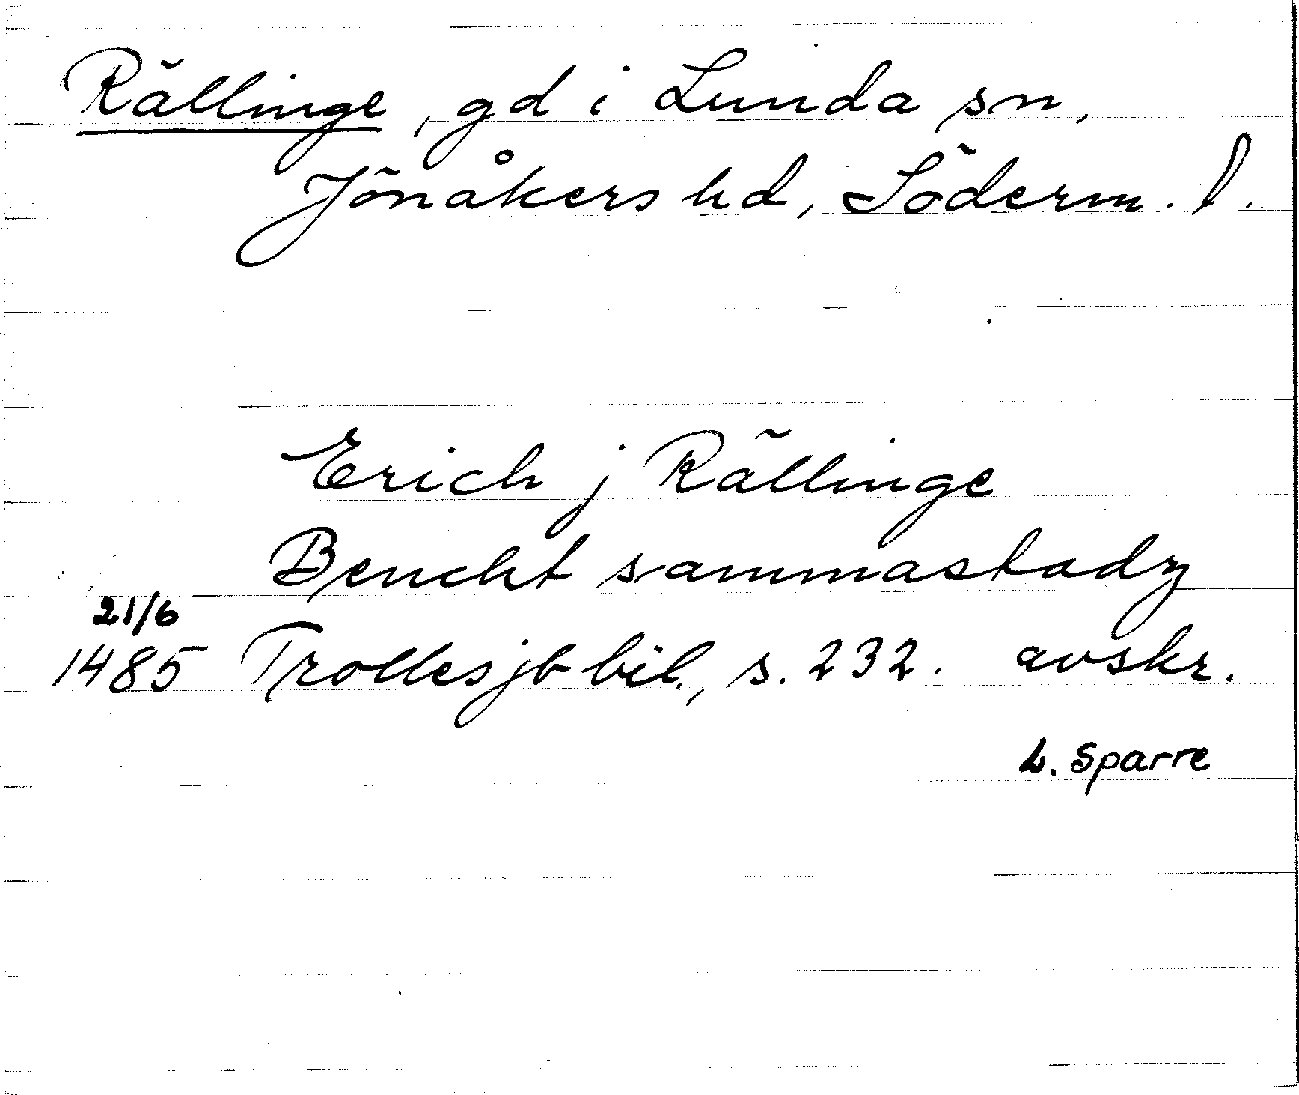 Rällinge, gd i Lunda sn,
Jönåkers hd, Söderm. l.
Erich j Rällinge
Benckt sammastadz
21/6
1485 Trolles jb bil., s. 232. avskr.
L. Sparre